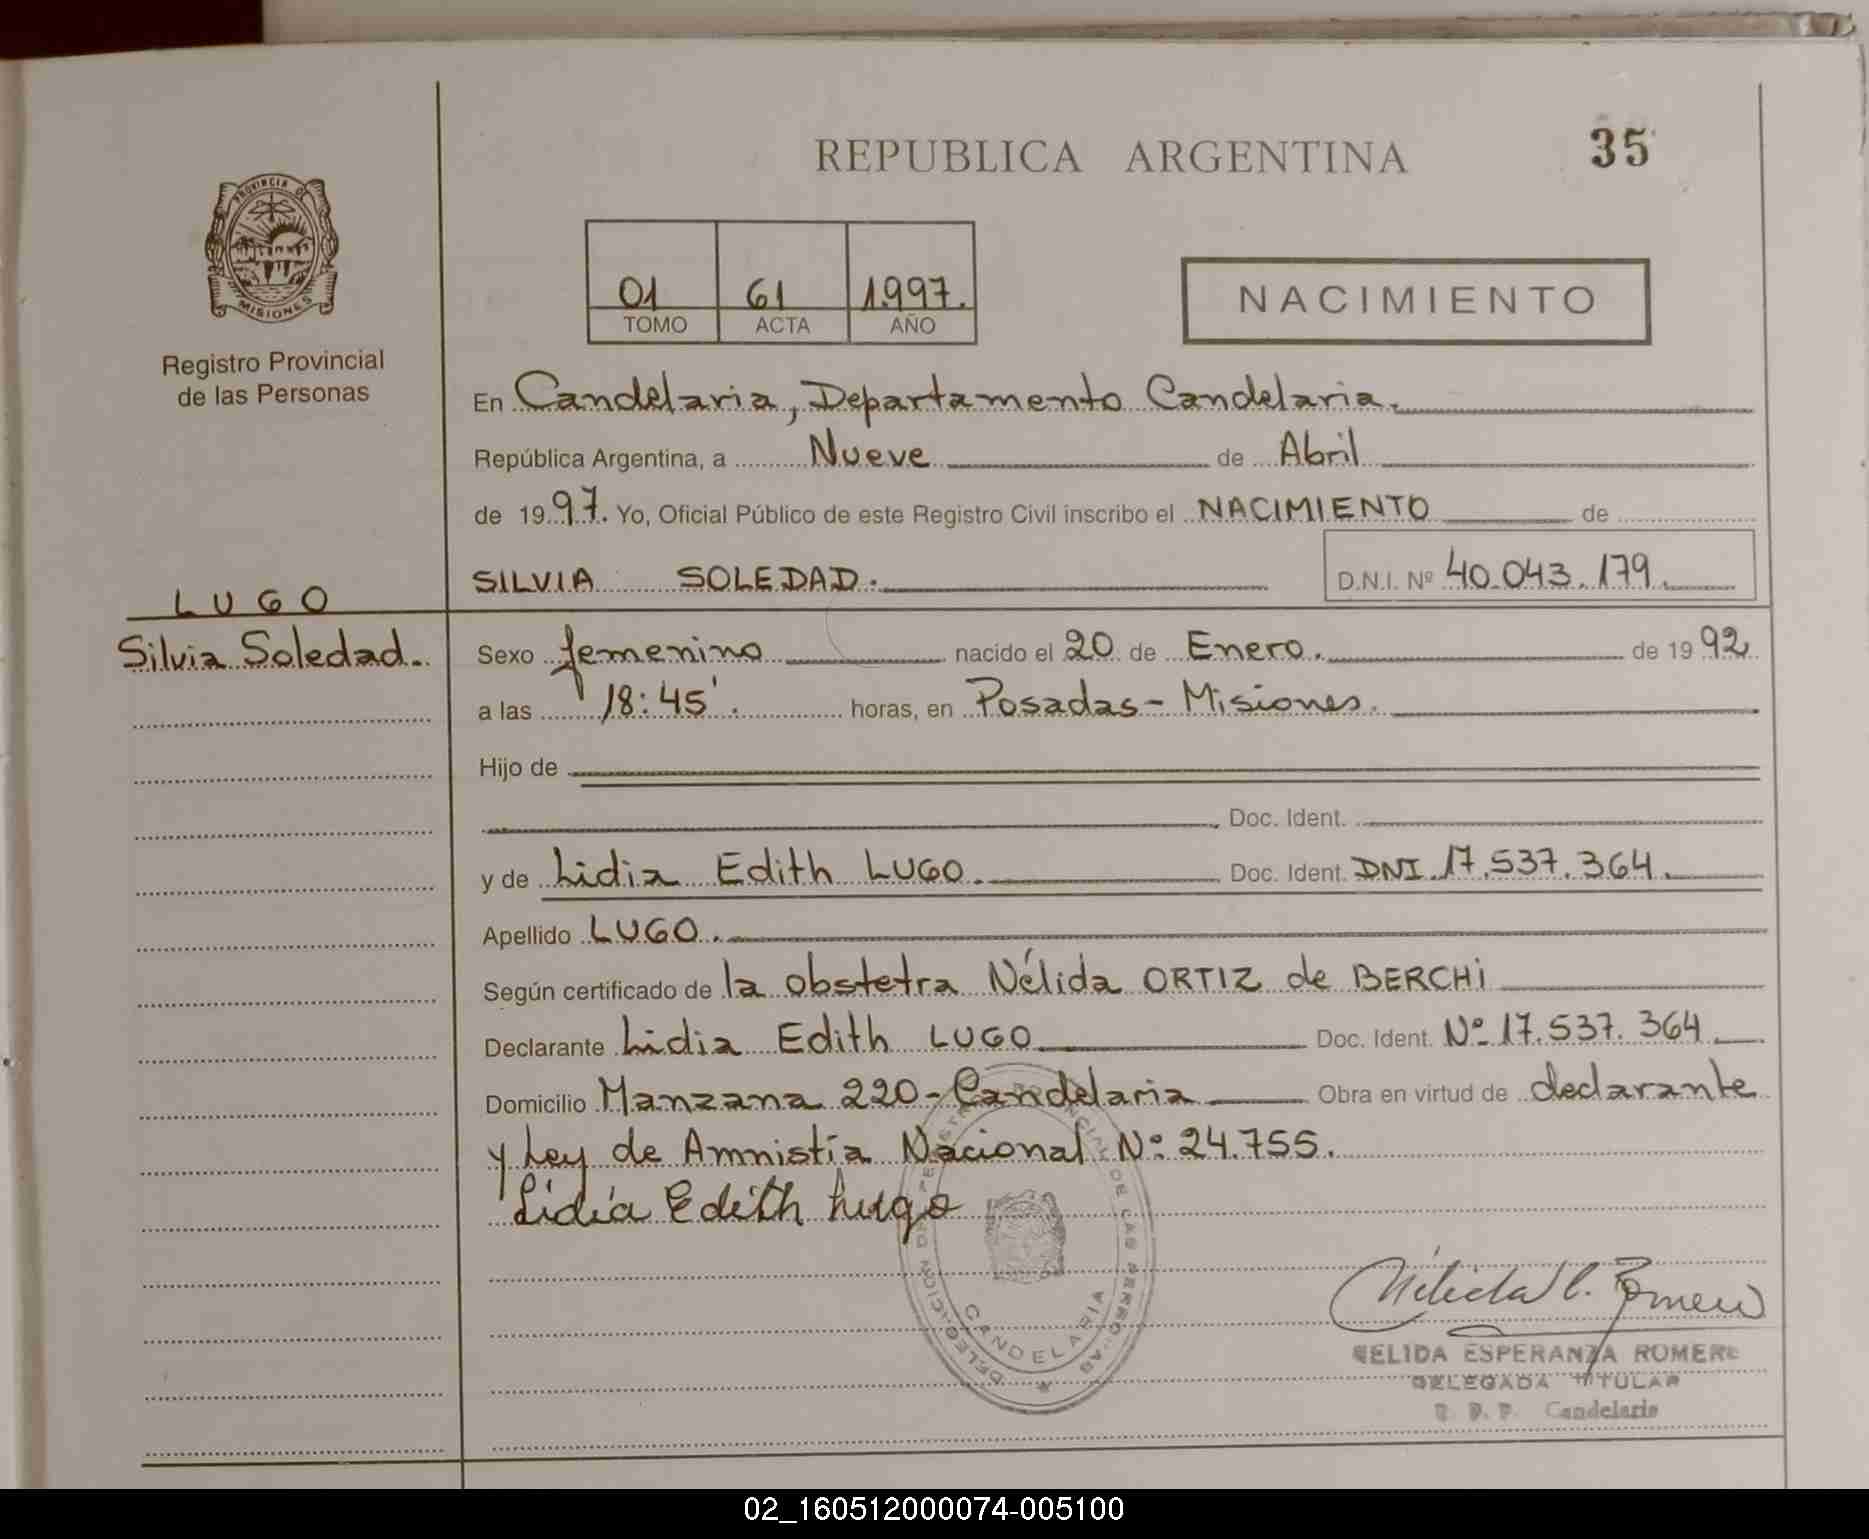 35
REPUBLICA ARGENTINA
PROVINCIA DE
MISIONES
Registro Provincial
de las Personas
01 61 1.997.
TOMO ACTA AÑO
NACIMIENTO
En Candelaria, Departamento Candelaria.
República Argentina, a Nueve de Abril
de 1997. Yo, Oficial Público de este Registro Civil inscribo el NACIMIENTO de
SILVIA SOLEDAD. D.N.I. Nº 40.043.179.
LUGO
Silvia Soledad.
Sexo femenino nacido el 20 de Enero. de 1992
a las 18:45'. horas, en Posadas - Misiones.
Hijo de
Doc. Ident.
y de Lidia Edith LUGO. Doc. Ident. DNI.17.537.364.
Apellido LUGO.
Según certificado de la obstetra Nélida ORTIZ de BERCHi
Declarante Lidia Edith LUGO Doc. Ident. Nº 17.537.364
Domicilio Manzana 220 - Candelaria Obra en virtud de declarante
y Ley de Amnistía Nacional Nº 24.755.
Lidia Edith Lugo
CANDELARIA
NELIDA ESPERANZA ROMERO
DELEGADA TITULAR
Candelaria
02_160512000074-005100